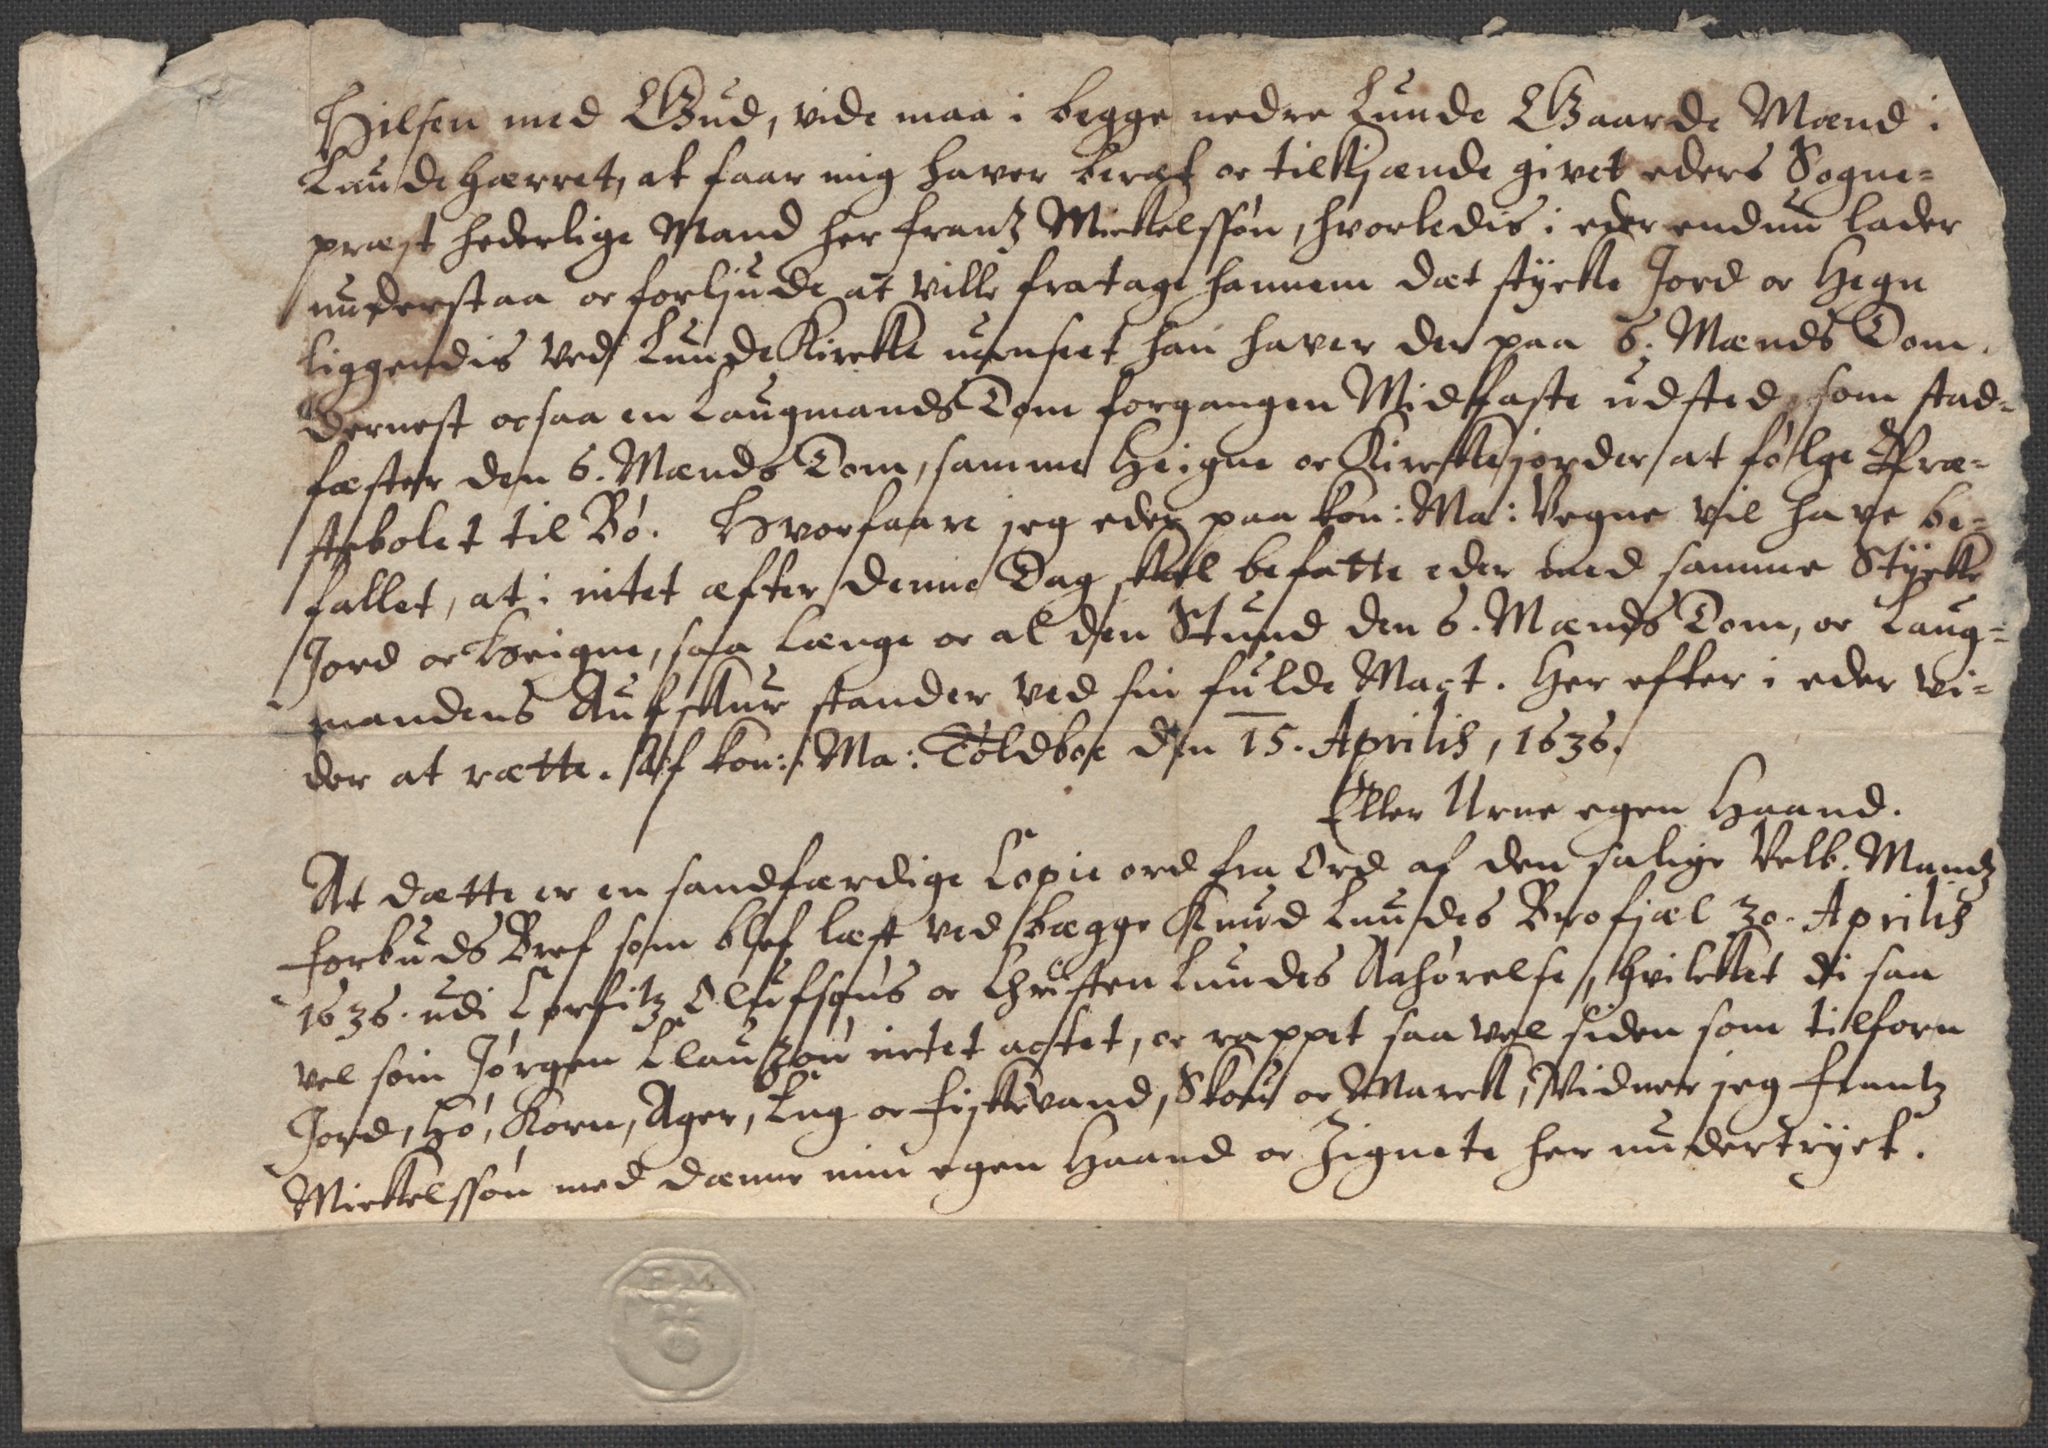 Hilsen med Gud, vide maa i begge nedre Lunde Gaarde Mænd i
Lunde Hærret, at faar mig haver beræt oc tilkjænde givet eders Sogne=
præst hederlige Mand her Frantz Mickelssøn, hvorledis i eder endnu lader
understaa oc forljude at ville fratage hannem dæt stycke Jord oc Hegn
liggendis ved Lunde Kircke uanseet han haver der paa 6. Mænds Dom,
dernest ocsaa en Laugmands Dom forgangen Midfaste udsted, som stad=
fæster den 6. Mænds Dom, samme Heigne oc Kirckejorder at følge Præ=
stebolet til Bø. Hvorfaare jeg eder paa kon: Ma: Vegne vil have be=
fallet, at i intet æfter denne Dag skal befatte eder med samme Stycke
Jord oc Heigne, saa længe oc al den Stund den 6. Mænds Dom, oc Laug=
mandens Aufskur stander ved sin fulde Mact. Her efter i eder vi=
der at rætte. Af kon: Ma: Toldboe den 15. Aprilis, 1636.
Eller Urne egen Haand.
At dætte er en sandfærdige Copie ord fra Ord af den salige Velb. Mandz
Forbuds Bref som blef læst ved bægge Knud Lundes Brofjæl 30. Aprilis
1636. udi Corfitz Olufsøns oc Christen Lundes Aahørelse, hvilcket di saa
vel som Jørgen Clauszøn intet actet, oc rappet saa vel siden som tilforn
Jord, Hø, Korn, Ager, Eng oc Fiskevand, Skou oc Marck, Vidner jeg Frantz
Mickelssøn med dænne min egen Haand oc Zignete her undertryct.
F M